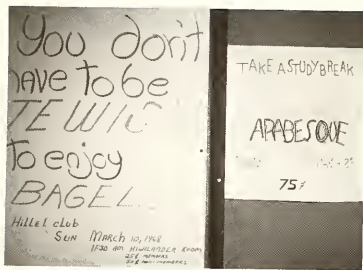 You don't
have to be
JEWIS
to enjoy
BAGEL
Hillel club
SUN MARCH 10, 1968
11:30 AM HIGHLANDER ROOM
25¢ MEMBERS
50¢ NON-MEMBERS
TAKE A STUDY BREAK
ARABESQUE
75¢